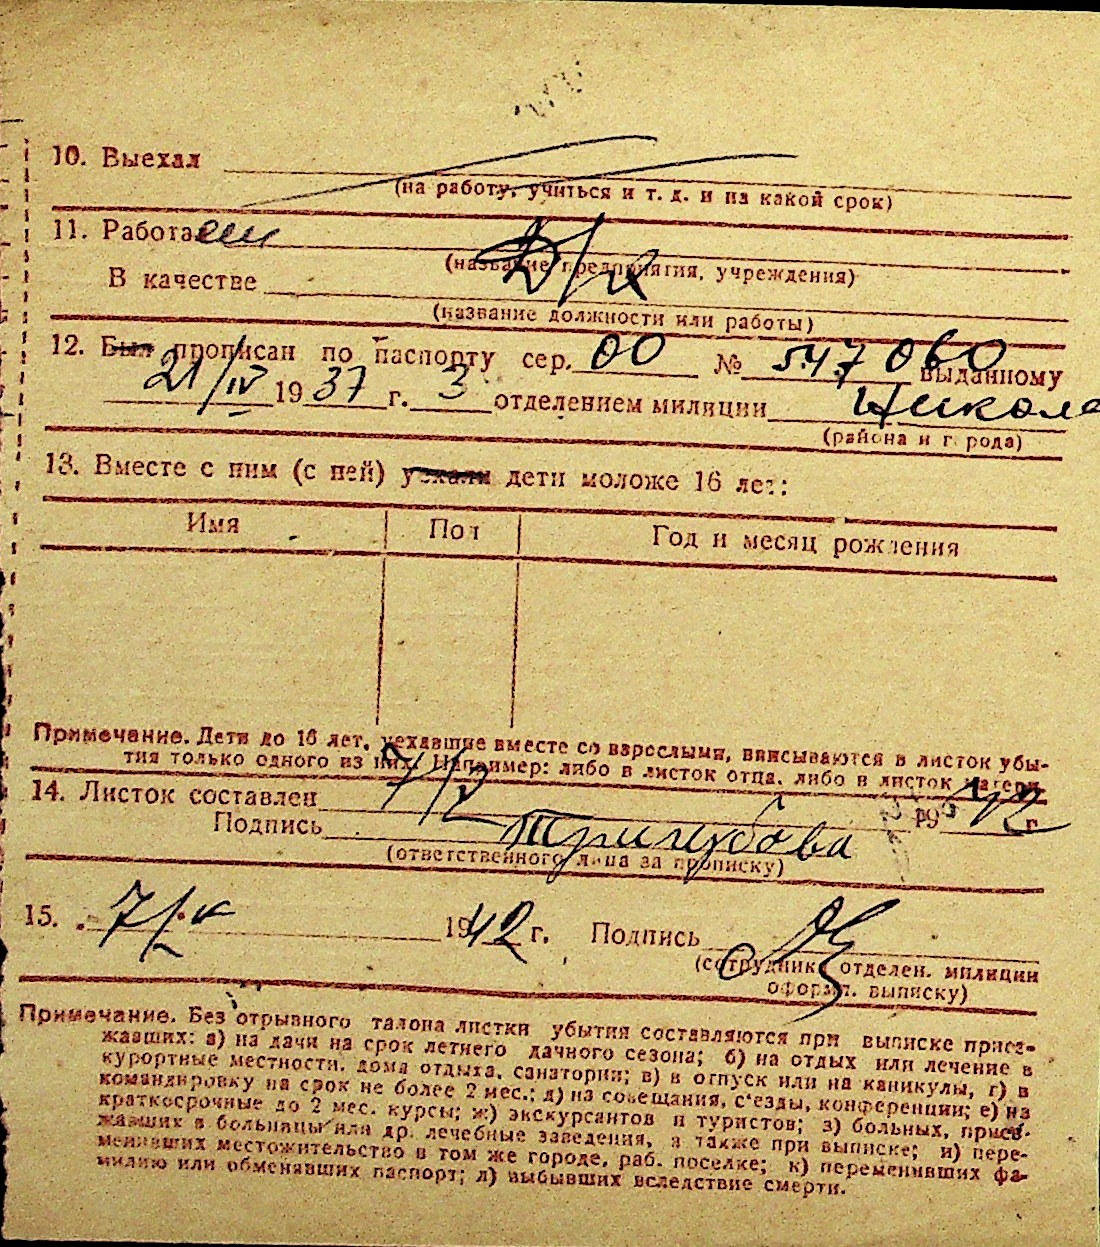 10. Выехал
(на работу, учиться и т. д. и на какой срок)
11. Работа
(название предприятия, учреждения)
В качестве Д/х
(название должности или работы)
12. Был прописан по паспорту сер. 00 № 547060 выданному
21/IV 1937 г. 3 отделением милиции Никола
(района и города)
13. Вместе с ним (с ней) уехали дети моложе 16 лет:
Имя Пол Год и месяц рождения
Примечание. Дети до 16 лет, уехавшие вместе со взрослыми, вписываются в листок убы-
тия только одного из них. Например: либо в листок отца, либо в листок матери
14. Листок составлен 7/X 1942 г
Подпись Тригубова
(ответственного лица за прописку)
15. 7/X 1942 г. Подпись
(сотрудник отделен. милиции
оформ. выписку)
Примечание. Без отрывного талона листки убытия составляются при выписке приез-
жавших: а) на дачи на срок летнего дачного сезона; б) на отдых или лечение в
курортные местности, дома отдыха, санатории; в) в отпуск или на каникулы, г) в
командировку на срок не более 2 мес.; д) на совещания, с'езды, конференции; е) на
краткосрочные до 2 мес. курсы; ж) экскурсантов и туристов; з) больных, приез-
жавших в больницы или др. лечебные заведения, а также при выписке; и) пере-
менивших местожительство в том же городе, раб. поселке; к) переменивших фа-
милию или обменявших паспорт; л) выбывших вследствие смерти.